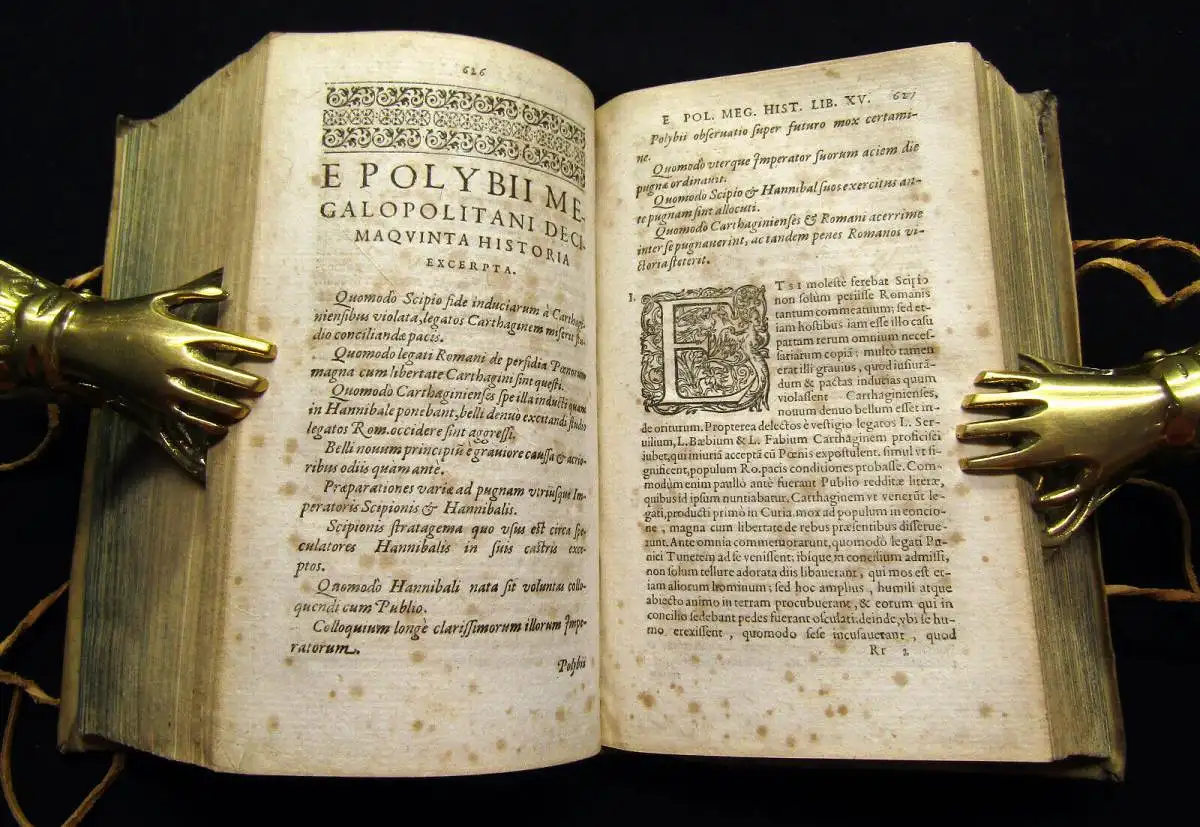 626
E POLYBII ME-
GALOPOLITANI DECI-
MAQVINTA HISTORIA
EXCERPTA.
Quomodo Scipio fide induciarum à Carthagi-
niensibus violata, legatos Carthaginem miserit stu-
dio conciliandæ pacis.
Quomodo legati Romani de perfidia Pœnorum
magna cum libertate Carthagini sint questi.
Quomodo Carthaginienses spe illa inducti quam
in Hannibale ponebant, belli denuo excitandi studio
legatos Rom. occidere sint aggressi.
Belli nouum principiū è grauiore caussa & acrio-
ribus odiis quàm ante.
Præparationes variæ ad pugnam vtriusque Im-
peratoris Scipionis & Hannibalis.
Scipionis stratagema quo vsus est circa spe-
culatores Hannibalis in suis castris exce-
ptos.
Quomodò Hannibali nata sit voluntas collo-
quendi cum Publio.
Colloquium longè clarissimorum illorum Impe-
ratorum.
Polybii
E POL. MEG. HIST. LIB. XV. 627
Polybii obseruatio super futuro mox certami-
ne.
Quomodò vterque Imperator suorum aciem die
pugnæ ordinauit.
Quomodo Scipio & Hannibal suos exercitus an-
te pugnam sint allocuti.
Quomodo Carthaginienses & Romani acerrime
inter se pugnauerint, ac tandem penes Romanos vi-
ctoria steterit.
I. ETSI molestè ferebat Scipio
non solùm periisse Romanis
tantum commeatum; sed et-
iam hostibus iam esse illo casu
partam rerum omnium neces-
sariarum copiā; multo tamen
erat illi grauius, quod iusiurā-
dum & pactas inducias quum
violassent Carthaginienses,
nouum denuo bellum esset in-
de oriturum. Propterea delectos è vestigio legatos L. Ser-
uilium, L. Bæbium & L. Fabium Carthaginem proficisci
iubet, qui iniuriā acceptā cū Pœnis expostulent. simul vt si-
gnificent, populum Ro. pacis conditiones probasse. Com-
modùm enim paullò antè fuerant Publio redditæ literæ,
quibus id ipsum nuntiabatur. Carthaginem vt venerūt le-
gati, producti primo in Curiā. mox ad populum in concio-
ne, magna cum libertate de rebus præsentibus disserue-
runt. Ante omnia commemorarunt, quomodò legati Pœ-
nici Tunetem ad se venissent: ibique in concilium admissi,
non solùm tellure adorata diis libauerant, qui mos est et-
iam aliorum hominum; sed hoc amplius, humili atque
abiecto animo in terram procubuerant, & eorum qui in
concilio sedebant pedes fuerant osculati. deinde, vbi se hu-
mo erexissent, quomodo sese incusauerant, quod
Rr 2